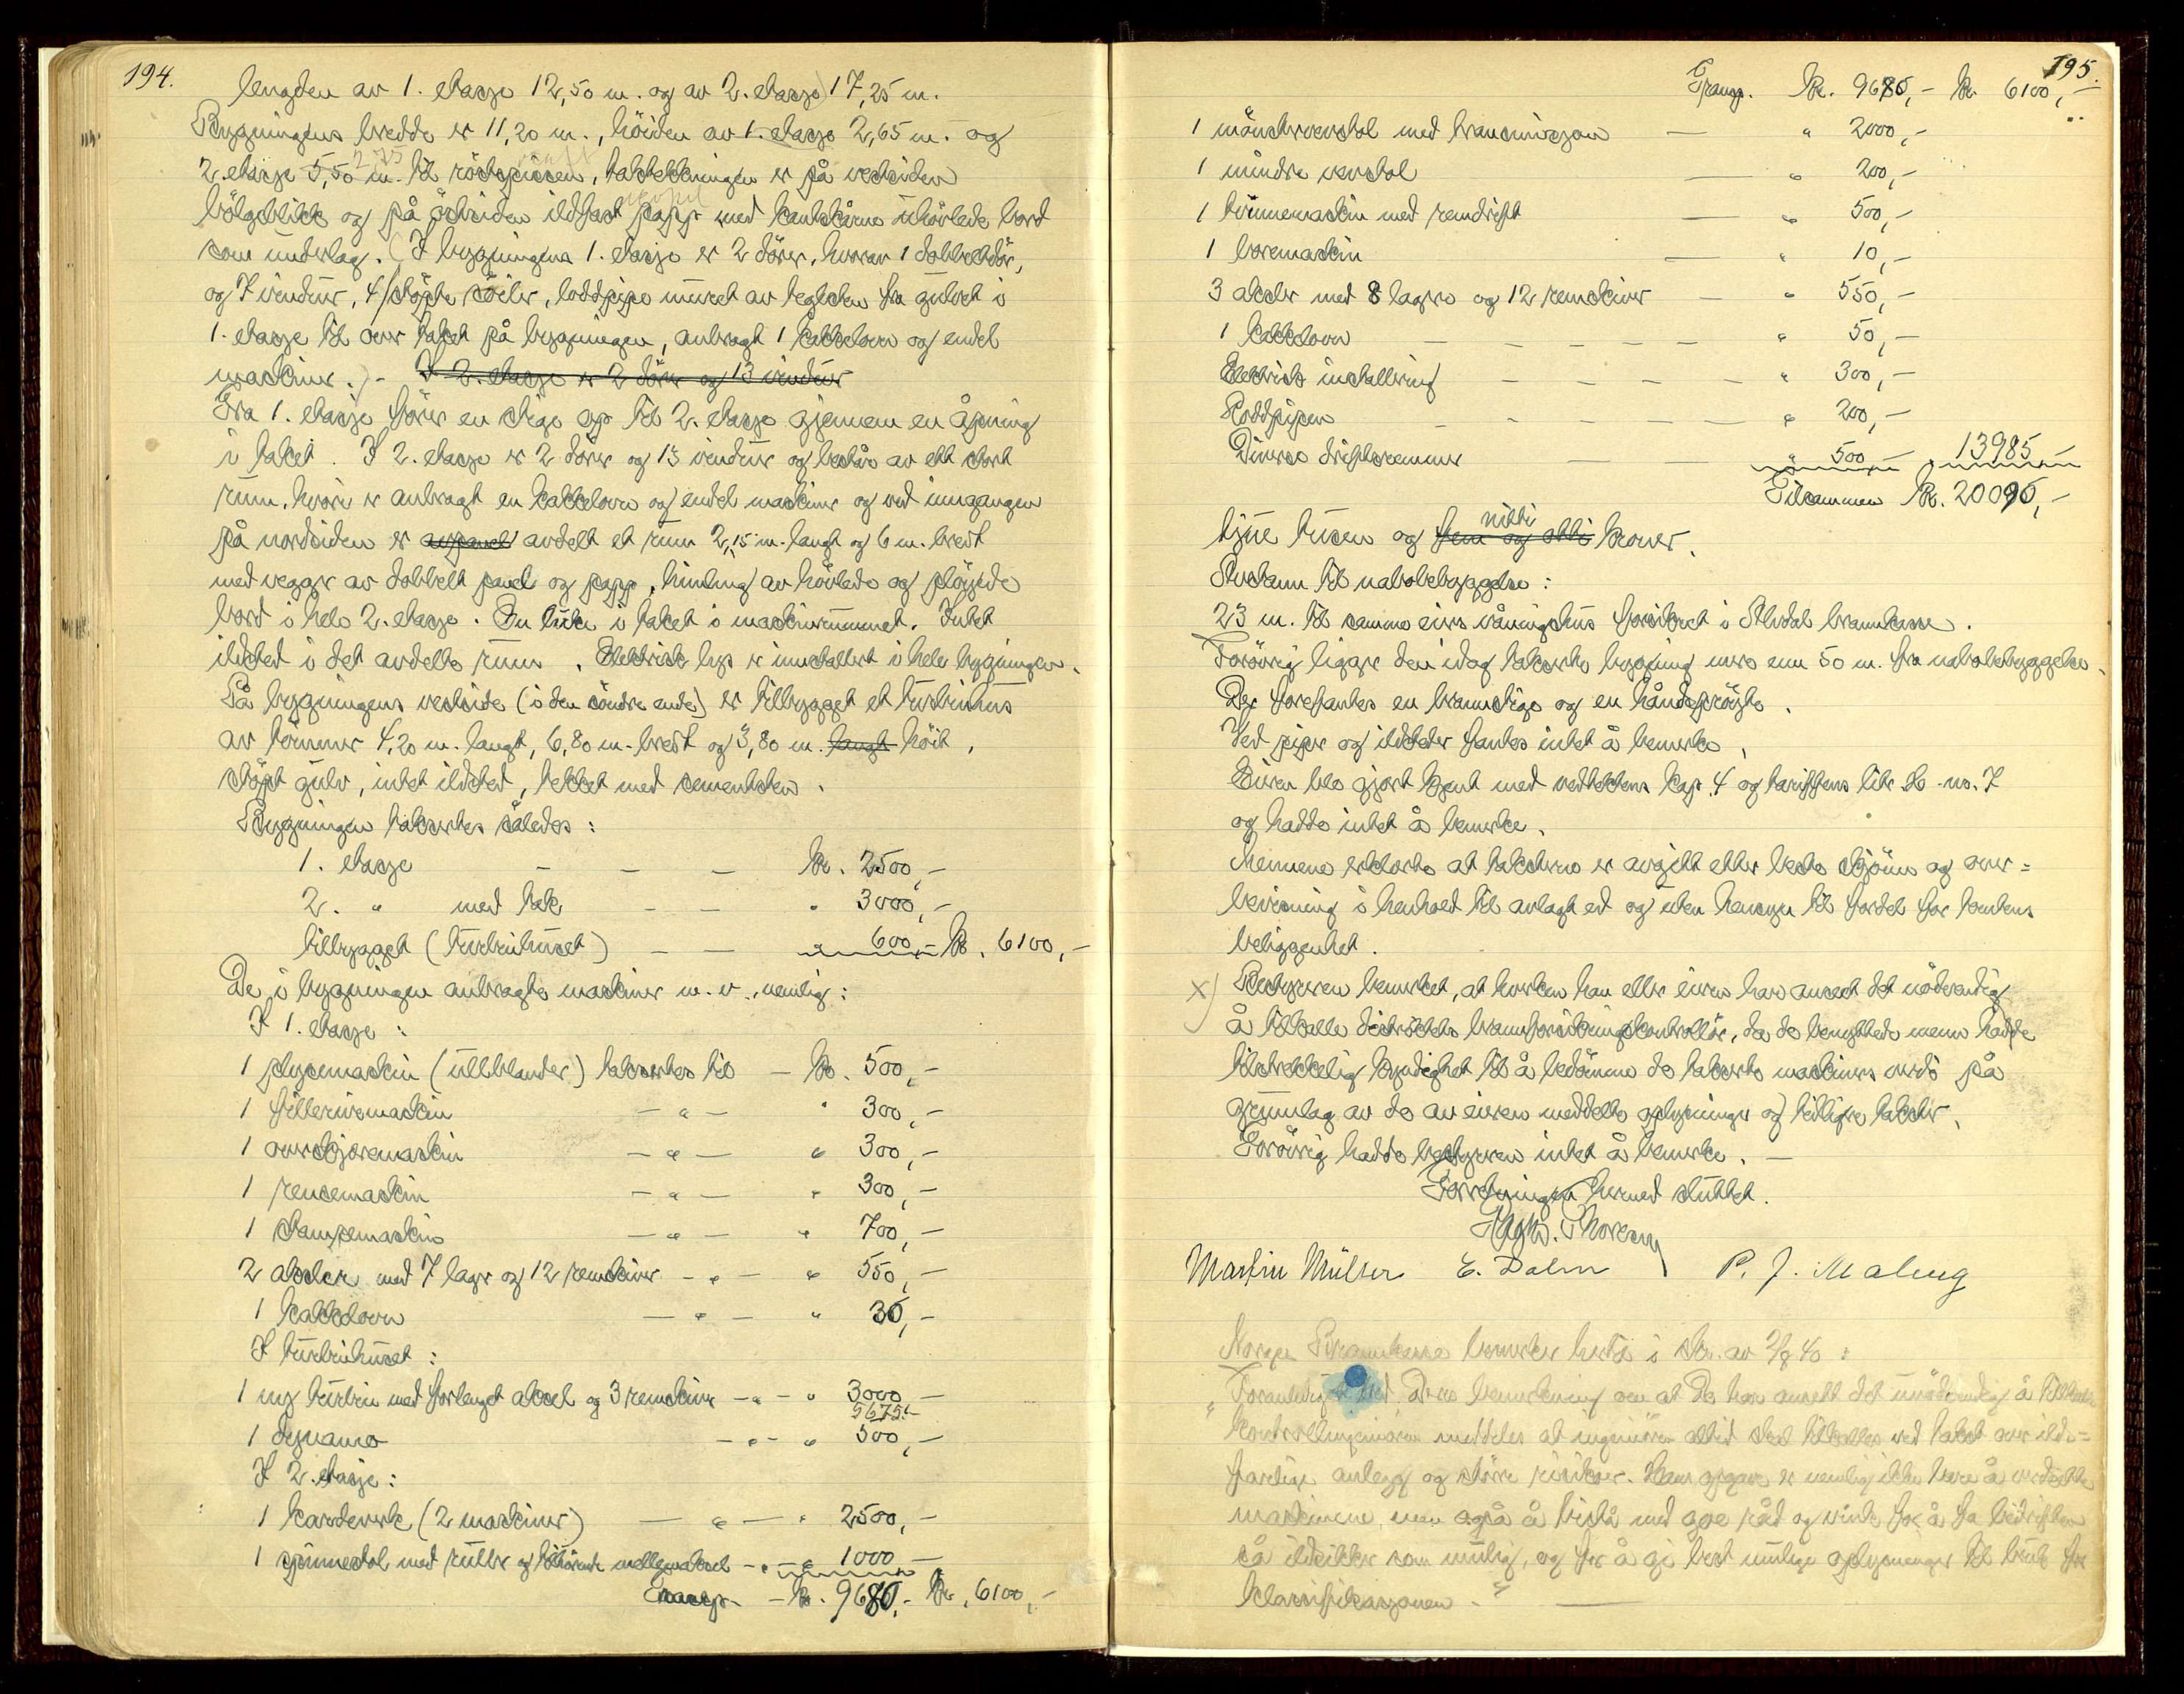 194.
lengden av 1. etasje 12,50 m. og av 2. etasje 17,25 m.
Bygningens bredde er 11,20 m., höiden av 1. etasje 2,65 m. og
2,75
2. etasje 5,50 m. til röstspissen, taktekningen er på vestsiden
bölgeblikk og på östsiden ildfast papp med kantskårne uhövlede bord
som underlag. (I bygningens 1. etasje er 2 dörer, hvorav 1 dobbeltdör,
og 7 vinduer, 4 stöpte söiler, loddpipe muret av teglsten fra gulvet i
1. etasje til over taket på bygningen, anbragt 1 kakkelovn og endel
maskiner.) - I 2. etasje er 2 dörer og 13 vinduer
Fra 1. etasje förer en stige op til 2. etasje gjennem en åpning
i taket. I 2. etasje er 2 dörer og 13 vinduer og består av ett stort
rum, hvori er anbragt en kakkelovn og endel maskiner og ved inngangen
på nordsiden er avpanel avdelt et rum 2,15 m. langt og 6 m. bredt
med vegger av dobbelt panel og papp, himling av hövlede og plöyede
bord i hele 2. etasje. En luke i taket i maskinrummet. Intet
ildsted i det avdelte rum. Elektrisk lys er installert i hele bygningen.
På bygningens vestside (i den söndre ende) er tilbygget et turbinhus
av tömmer 4,20 m. langt, 6,80 m. bredt og 3,80 m. langt höit,
stöpt gulv, intet ildsted, tekket med sementsten.
Bygningen takseres således:
1. etasje - - - kr. 2500,-
2. " med tak - - " 3000,-
tilbygget (turbinhuset) - - " 600,- kr. 6100,-
De i bygningen anbragte maskiner m. v., nemlig:
I 1. etasje:
1 plysemaskin (ullblander) takseres til - kr. 500,-
1 fillerivemaskin - " - " 300,-
1 overskjæremaskin - " - " 300,-
1 rensemaskin - " - " 300,-
1 stampemaskin - " - " 700,-
2 aksler med 7 lager og 12 remskiver - " - " 550,-
1 kakkelovn - " - " 30,-
I turbinhuset:
1 ny turbin med forlenget aksel og 3 remskiver - " - " 3000,-
5675.-
1 dynamo - " - " 500,-
I 2. etasje:
1 kardeverk (2 maskiner) - " - " 2500,-
1 spinnestol med ruller og tilhörende mellemaksel - " - " 1000,-
Transp. - kr. 9680,- kr. 6100,-
195.
Transp. kr. 9680,- kr. 6100,-
1 mönstervevstol med transmisjon - " 2000,-
1 mindre vevstol - " 200,-
1 tvinnemaskin med remdrift - " 500,-
1 boremaskin - " 10,-
3 aksler med 8 lagre og 12 remskiver - " 550,-
1 kakkelovn - - - - - " 50,-
Elektrisk installering - - - - " 300,-
Loddpipen - - - - - " 200,-
Diverse driftsremmer - - " 500,- " 13985,-
Tilsammen kr. 20090,-
nitti
tyve tusen og fem og åtti kroner.
Avstann til nabobebyggelse:
23 m. til samme eiers våningshus forsikret i Stlidal brannkasse.
Forövrig ligger den idag takserte bygning mere enn 50 m. fra nabobebyggelse.
Der forefantes en brannstige og en håndspröyte.
Ved piper og ildsteder fantes intet å bemerke.
Eieren ble gjort kjent med vedtektens kap. 4 og tariffens litr. L no. 7
og hadde intet å bemerke.
Mennene erklærte at takstene er avgitt etter beste skjönn og over=
bevisning i henhold til avlagt ed og uten hensyn til fordel for tomtens
beliggenhet.
x) Bestyreren bemerket, at hverken han eller eieren har ansett det nödvendig
å tilkalle distriktets brannforsikringskontrollör, da de benyttede menn hadde
tilstrekkelig kyndighet til å bedömme de takserte maskiners verdi på
grunnlag av de av eieren meddelte oplysninger og tidligere takster.
Forövrig hadde bestyreren intet å bemerke. -
Forretningen hermed sluttet.
Martin Müller E. Dalen P. J. Maling
Norges Brannkasse bemerker hertil i skr. av 2/8 40:
" Foranlediget ved Deres bemerkning om at De har ansett det unödvendig å tilkalle
kontrollingeniören meddeles at ingeniören alltid skal tilkalles ved takst over ilds=
farlige anlegg og större risikoer. Hans opgave er nemlig ikke bare å verdsette
maskinene, men også å bistå med gode råd og vink for å få bedriften
så ildsikker som mulig, og for å gi best mulige oplysninger til bruk for
klassifikasjonen. " -